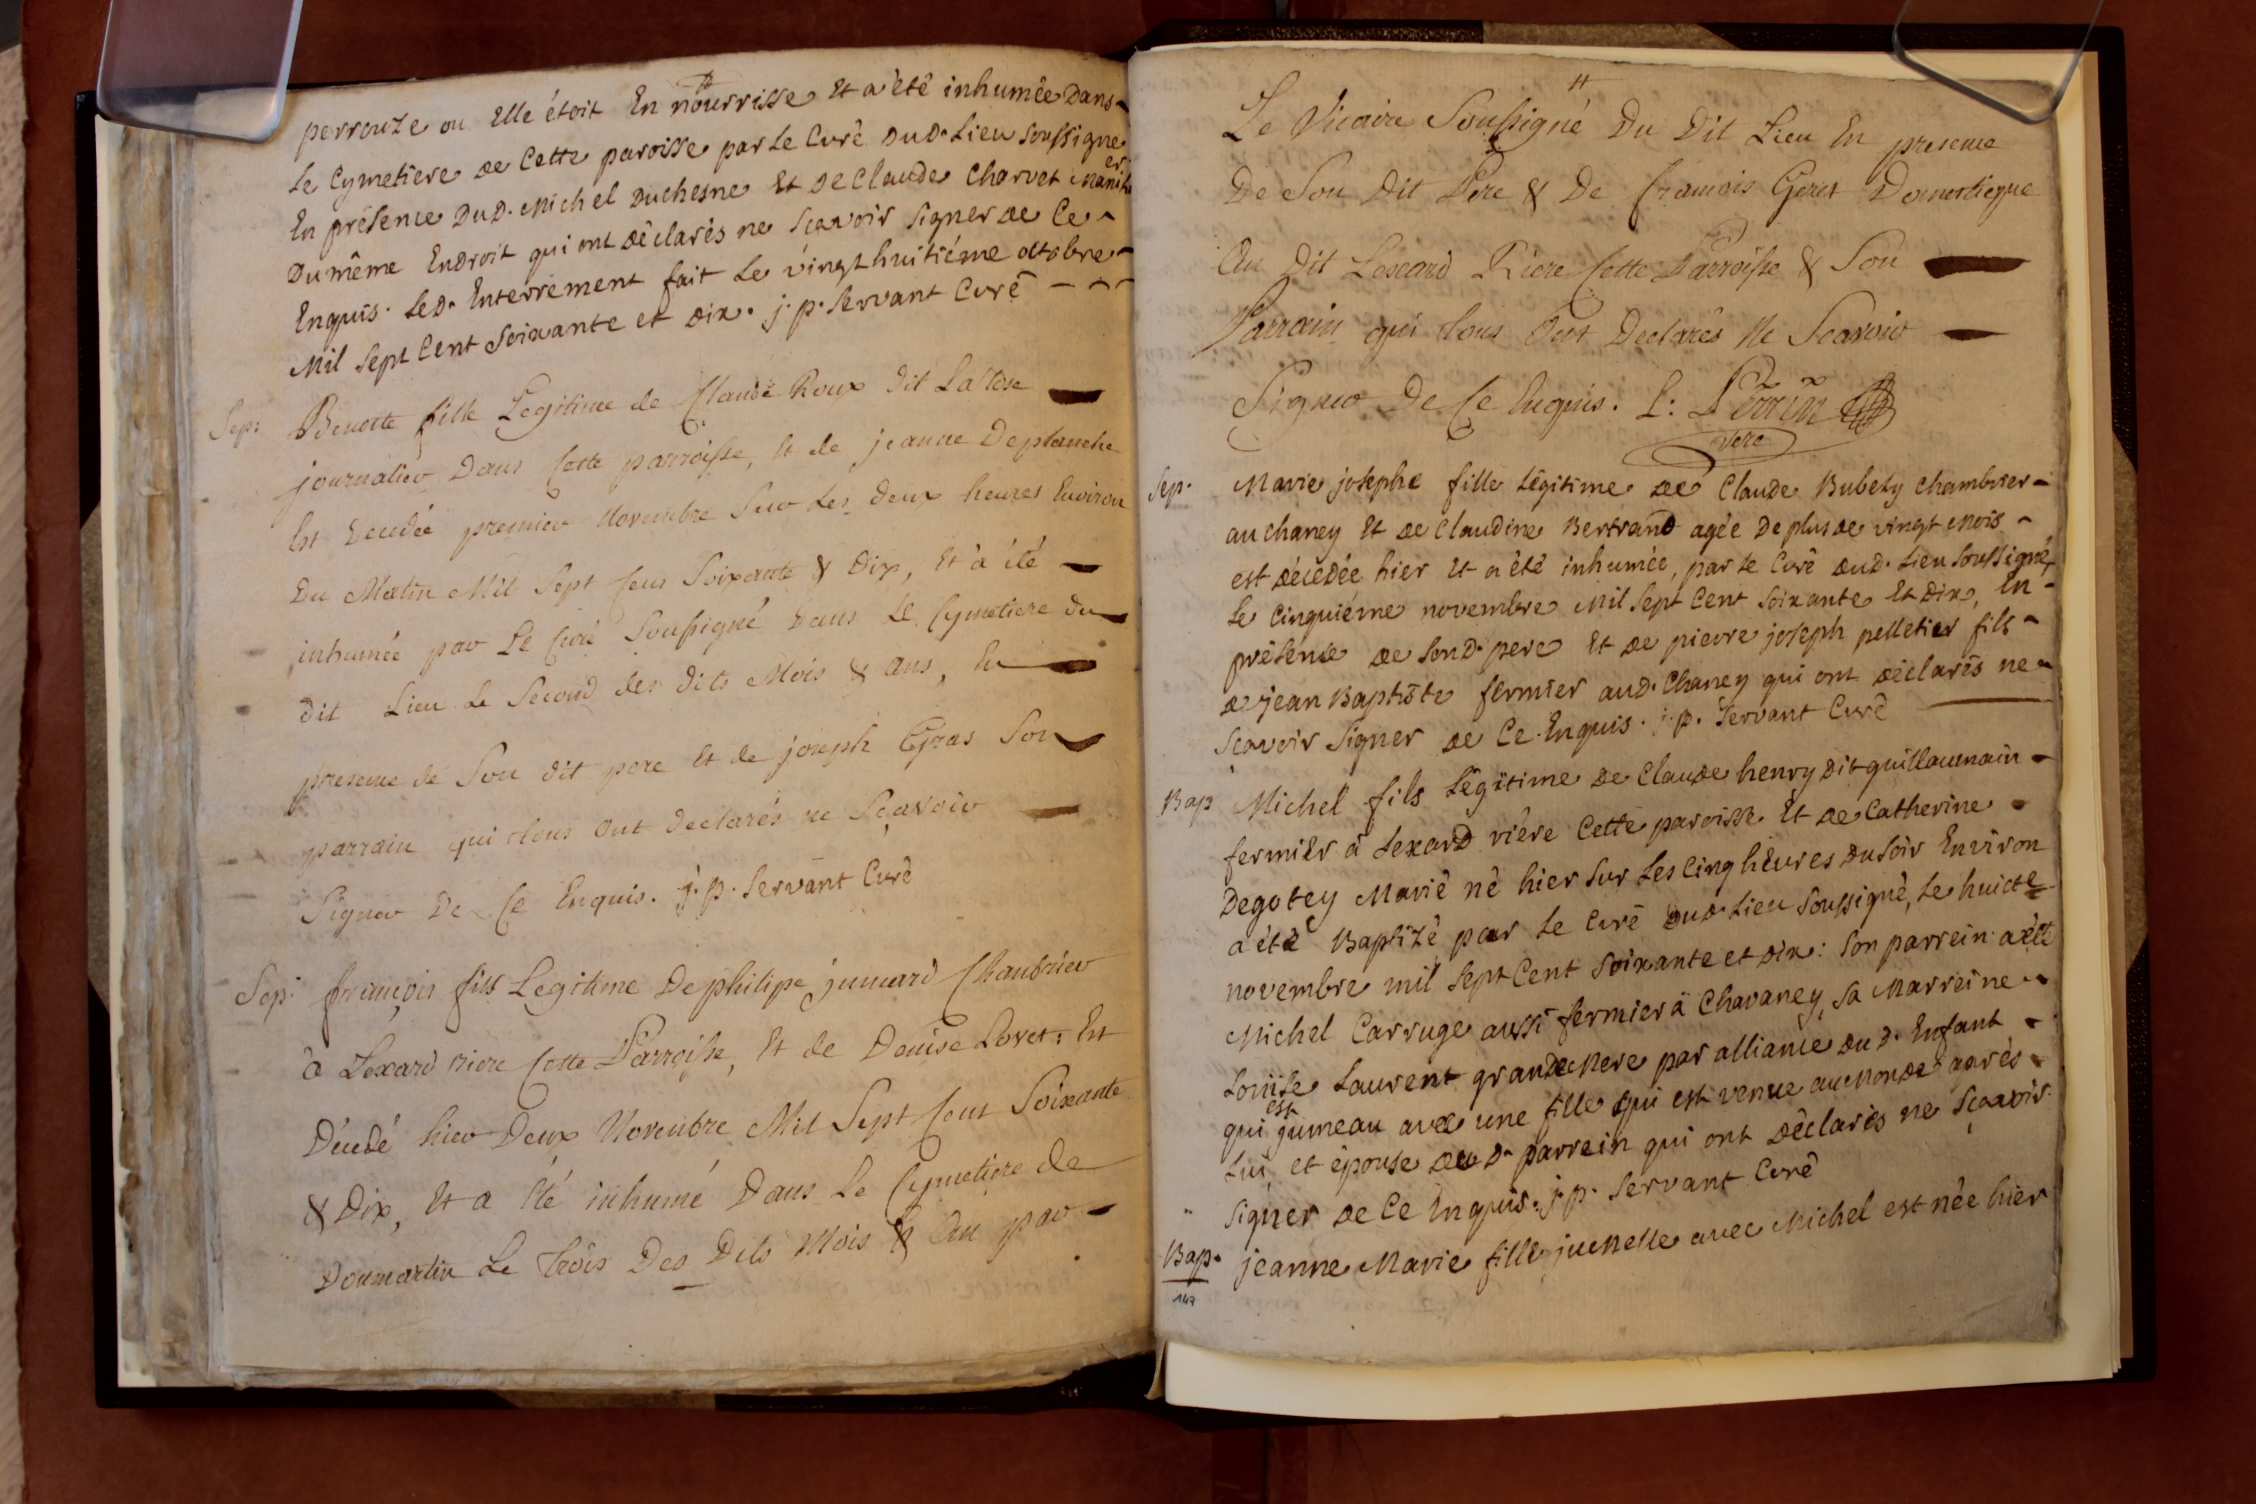 perrouze ou Elle étoit En nourrisse Et a été inhumée Dans
Le Cymetiere de Cette paroisse par Le Curé Dud. Lieu soussigné
En présence Dud. Michel Duchesne Et De Claude Charvet
Du même Endroit qui ont déclarés ne Scavoir Signer de Ce
Enquis. Led. Enterrement fait Le vingt huitiéme octobre
Mil Sept Cent Soixante et dix. j. p. Servant Curé
Sep: Benotte fille Legitime de Claude Roux dit
journalier Dans Cette parroisse, Et de jeanne Deplanche
Est Decedée premier Novembre Sur Les Deux heures Environ
Du Matin Mil Sept Cens Soixante & Dix, Et à été
inhumée par Le Curé Soussigné Dans Le Cymetiere du
dit Lieu Le Second des dits Mois & ans, En
presence de Son dit pere Et de joseph Gras Son
parrain qui tous Ont declarés ne Sçavoir
Signer De Ce Enquis. j. p. Servant Curé
Sep. françois fils Legitime De philipe jumard Chambrier
à Lexard riere Cette Parroisse, Et de Denise Loret; Est
Décedé hier Deux Novembre Mil Sept Cens Soixante
& Dix, Et a Eté inhumé Dans Le Cymetiere de
Domartin Le trois Des Dits Mois & An par
Le Vicaire Soussigné Du Dit Lieu En presence
De Son Dit Pere & De francois Geret Domestieque
Au Dit Lescard Riere Cette Parroisse & Son
Parrain qui tous Ont Declarés Ne Scavoir
Signer De Ce Enquis. P: Perrin
Vere
Sep. Marie josephe fille Légitime de Claude Bubely Chambrier
au chaney Et de Claudine Bertrand agée De plus de vingt Mois
est décedée hier Et a été inhumée, par Le Curé dud. Lieu Soussigné,
Le Cinquiéme novembre Mil Sept Cent Soixante Et Dix, En
présence de Sond. pere Et de pierre joseph pelletier fils
de jean Baptiste fermier aud. Chaney qui ont déclarés ne
Sçavoir Signer de Ce Enquis. j. p. Servant Curé
Bap Michel fils Légitime De Claude henry dit guillaumain
fermier à Lexard riére Cette paroisse Et de Catherine
Degotey Marié né hier Sur Les Cinq heures du Soir Environ
a été Baptizé par Le Curé dud. Lieu Soussigné, Le huicte
novembre mil Sept Cent Soixante et dix: Son parrein a été
Michel Carruge aussi fermier à Chavaney, Sa Marreine
Louise Laurent grande Mere par alliance du d. Enfant
qui est jumeau avec une fille qui est venue au Monde aprés
Lui, et épouse du d. parrein qui ont déclarés ne Sçavoir
Signer de Ce Enquis. j. p. Servant Curé
Bap. jeanne Marie fille jumelle avec Michel est née hier
147